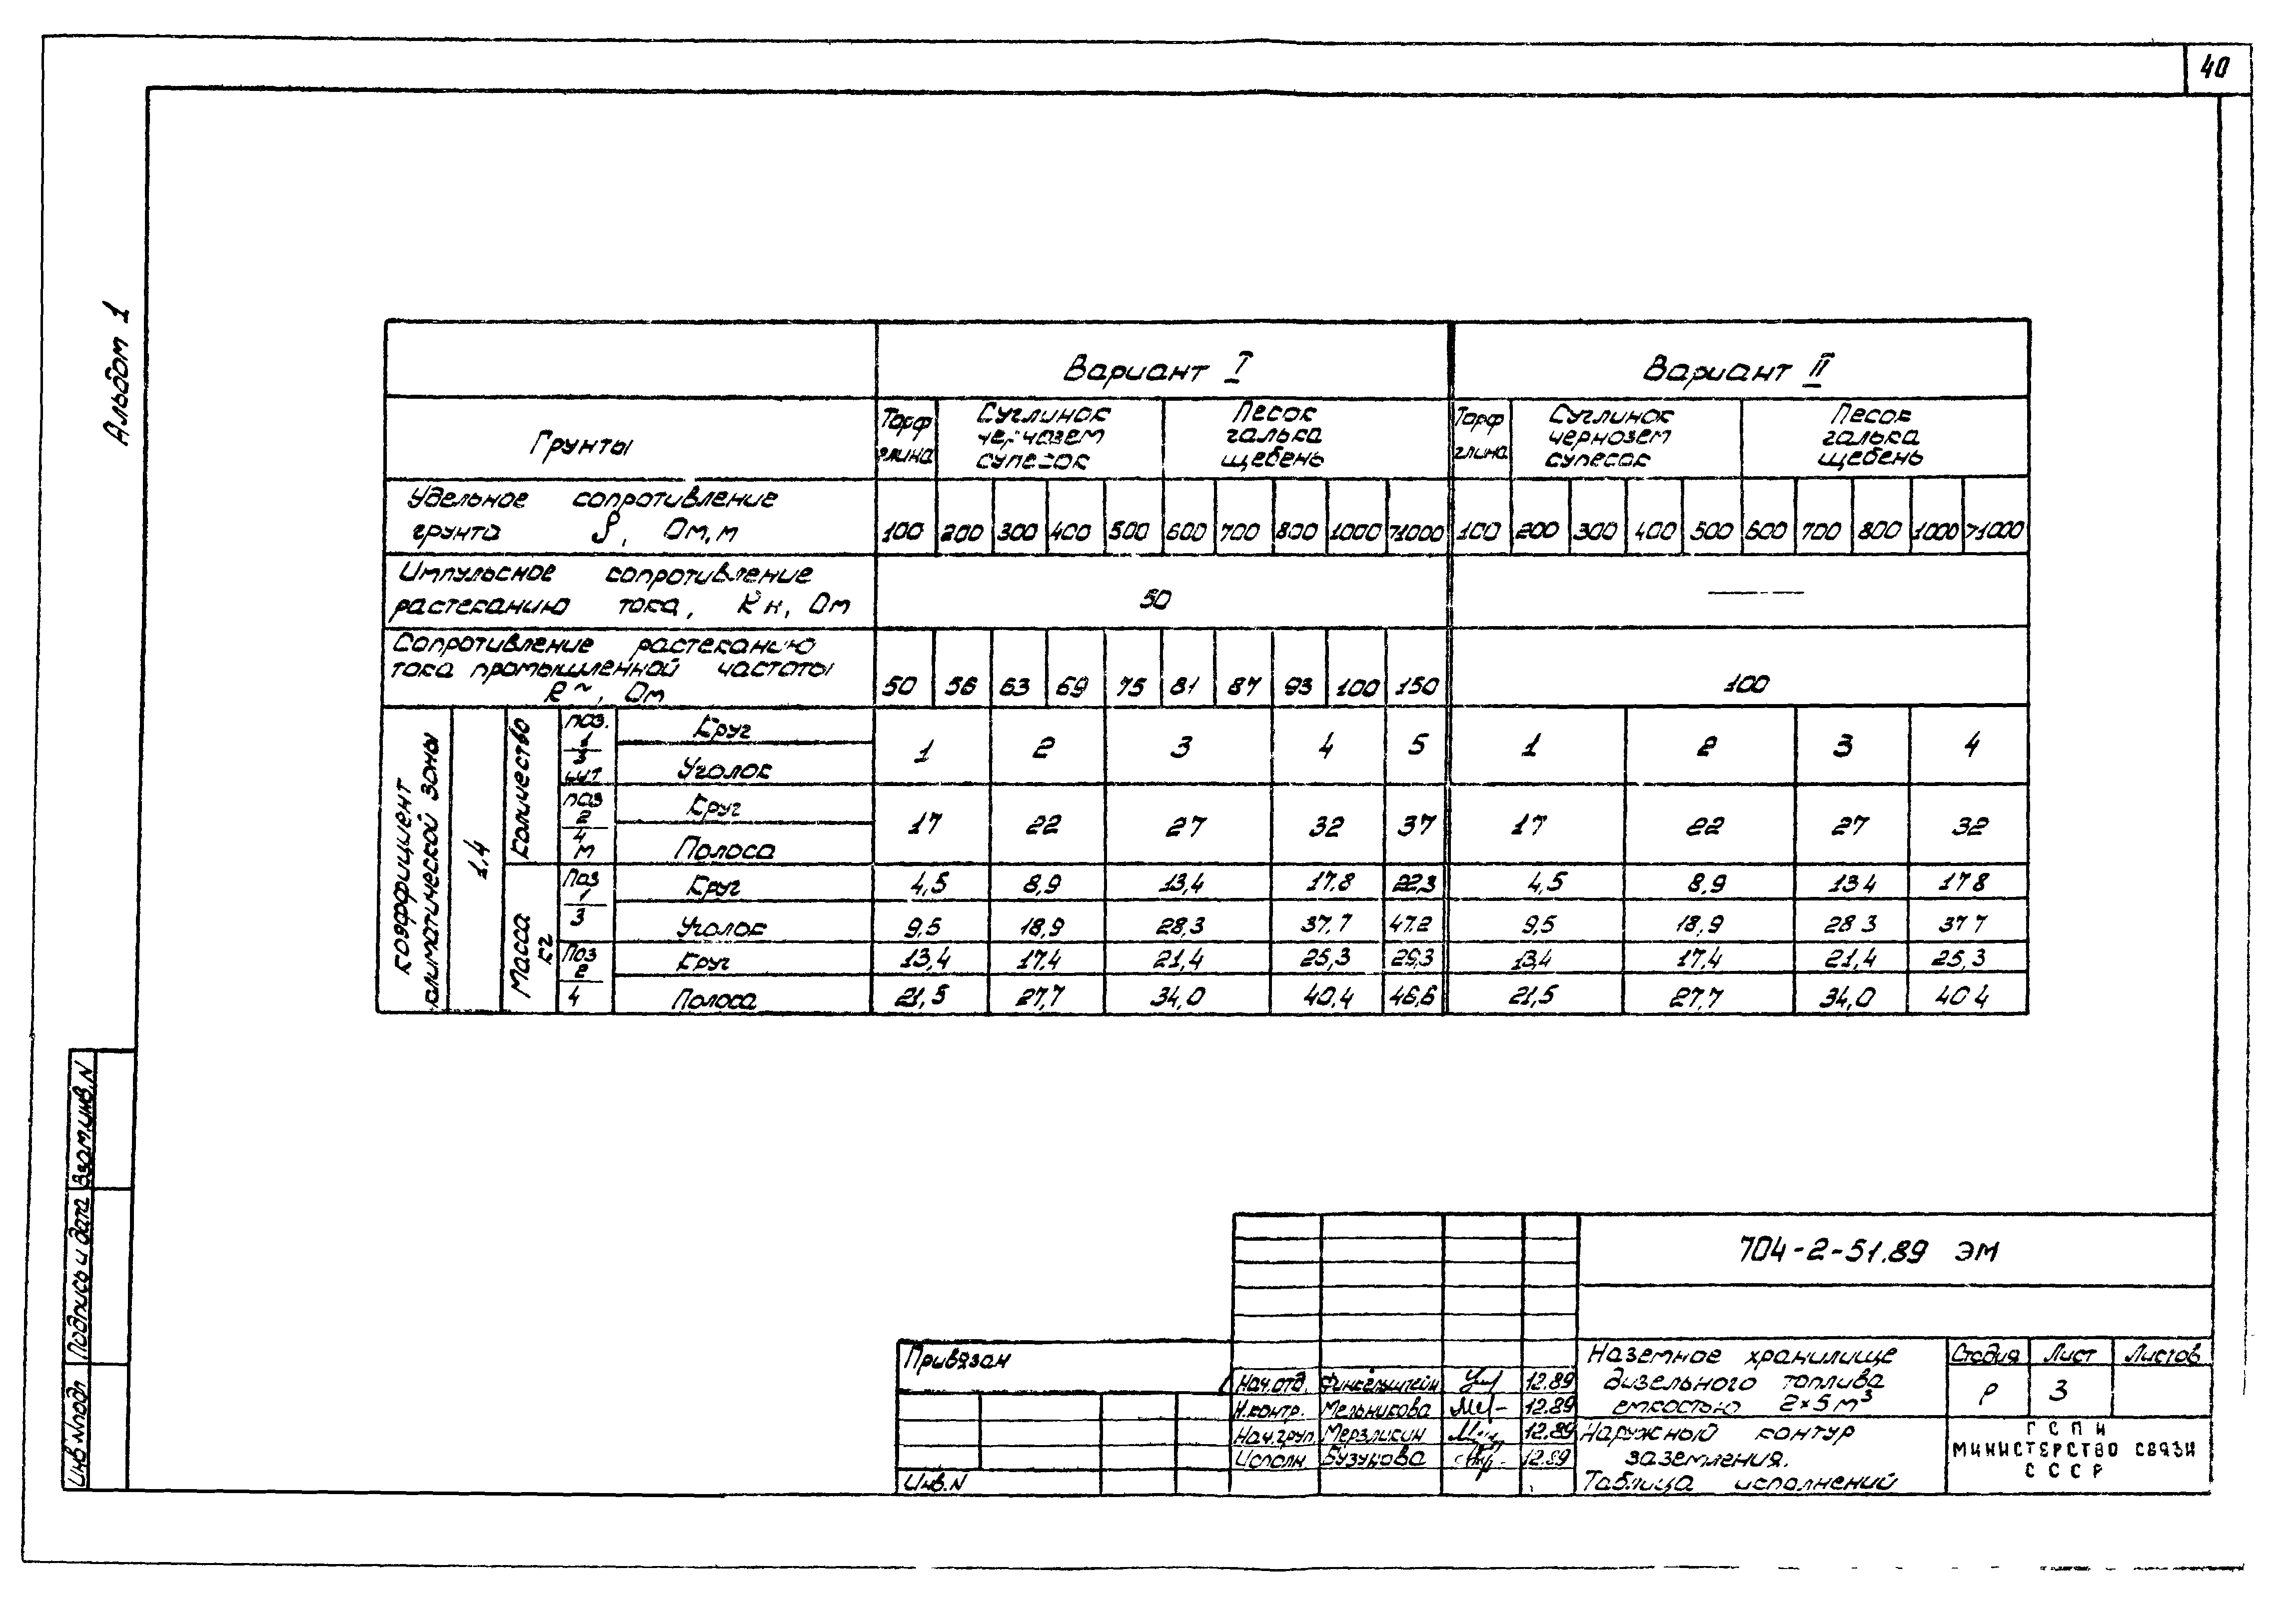 40
Альбом 1
Вариант I
Вариант II
Грунты
Торф глина
Суглинок чернозем супесок
Песок галька щебень
Торф глина
Суглинок чернозем супесок
Песок галька щебень
Удельное сопротивление
грунта ρ, Ом,м
100 200 300 400 500 600 700 800 1000 >1000 100 200 300 400 500 600 700 800 1000 >1000
Импульсное сопротивление
растеканию тока, Rи, Ом
50
—
Сопротивление растеканию
тока промышленной частоты
R~, Ом
50 56 63 69 75 81 87 93 100 150
100
Коэффициент
климатической зоны
1.4
Количество
поз. 1/3 шт
Круг
Уголок
1 2 3 4 5 1 2 3 4
поз 2/4 м
Круг
Полоса
17 22 27 32 37 17 22 27 32
Масса
кг
Поз 1/3
Круг 4,5 8,9 13,4 17.8 22,3 4,5 8,9 13 4 17 8
Уголок 9,5 18,9 28,3 37,7 47.2 9,5 18,9 28 3 37 7
Поз 2/4
Круг 13,4 17.4 21,4 25,3 29,3 13,4 17.4 21,4 25,3
Полоса 21,5 27,7 34,0 40,4 46,6 21,5 27,7 34,0 40 4
Взам.инв.N
Подпись и дата
Инв N подл
704-2-51.89 ЭМ
Привязан
Инв.N
Нач.отд. Финкельштейн 12.89
Н.контр. Мельникова 12.89
Нач.груп. Мерзликин 12.89
Исполн. Бузунова 12.89
Наземное хранилище
дизельного топлива
емкостью 2×5м³
Стадия Лист Листов
Р 3
Наружный контур
заземления.
Таблица исполнений
ГСПИ
МИНИСТЕРСТВО СВЯЗИ
СССР